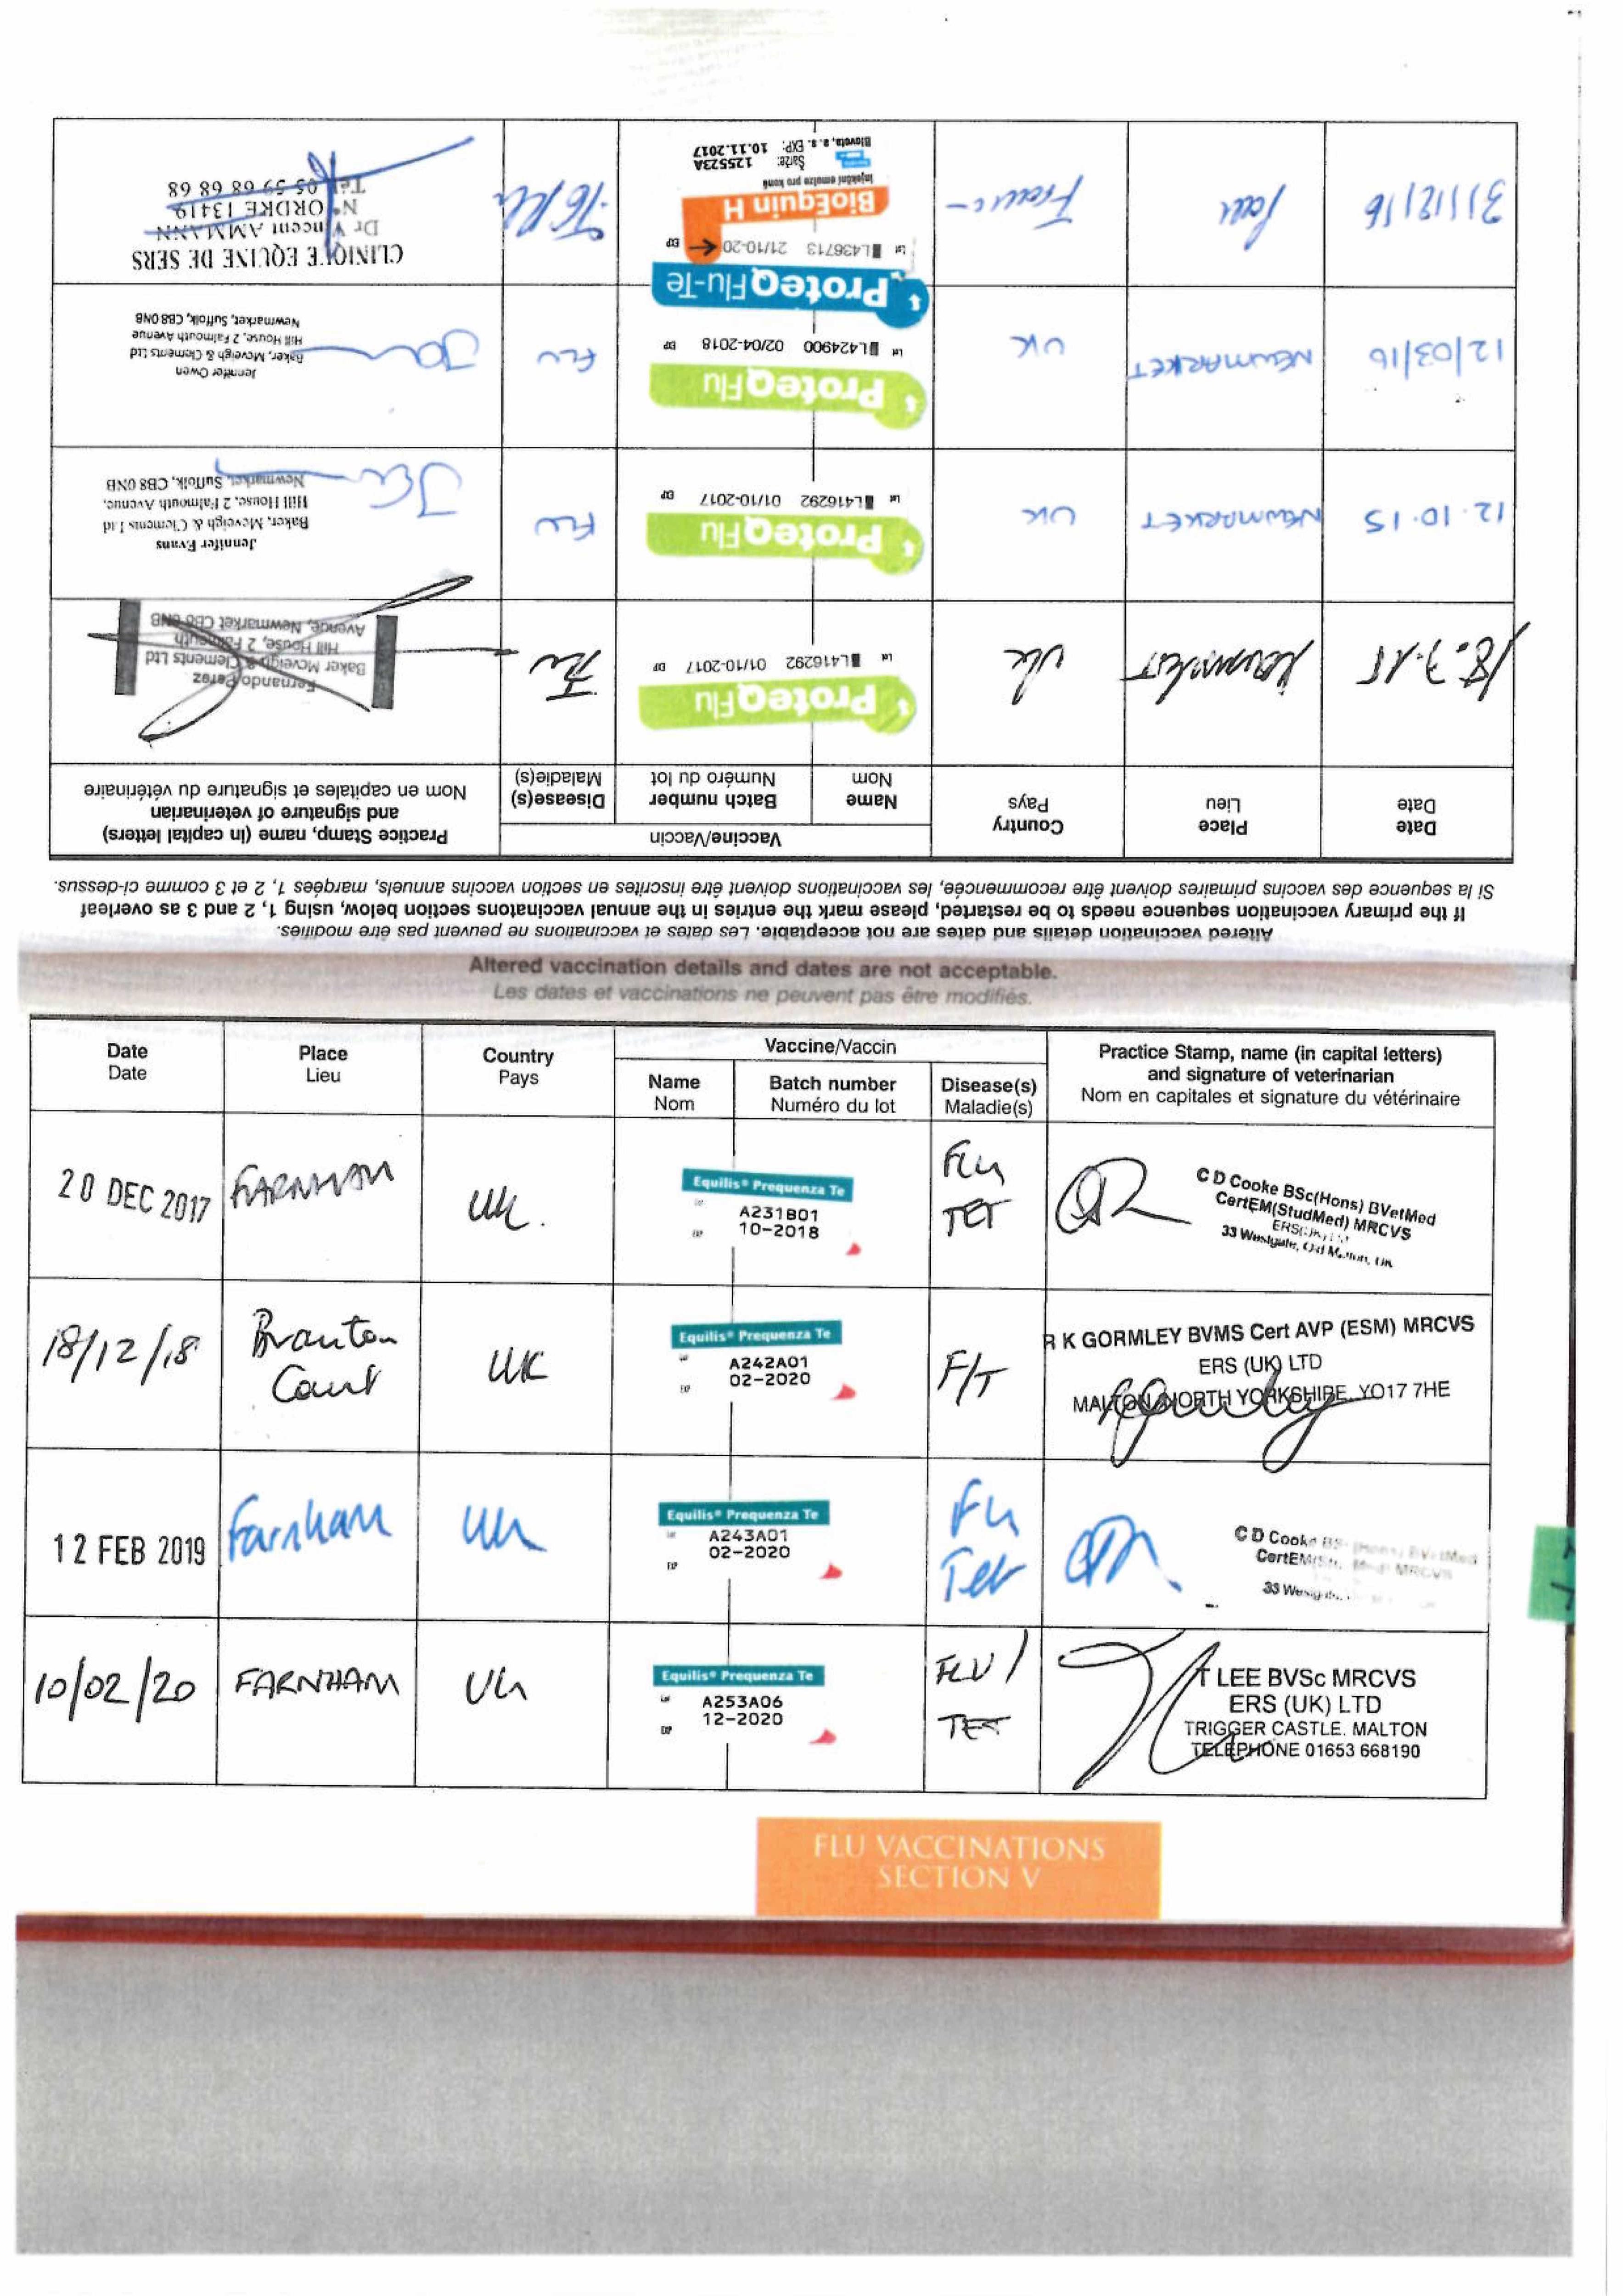 Altered vaccination details and dates are not acceptable. Les dates et vaccinations ne peuvent pas être modifiées.
If the primary vaccination sequence needs to be restarted, please mark the entries in the annual vaccinatons section below, using 1, 2 and 3 as overleaf
Si la sequence des vaccins primaires doivent être recommencée, les vaccinations doivent être inscrites en section vaccins annuels, marqées 1, 2 et 3 comme ci-dessus.
Date
Date
Place
Lieu
Country
Pays
Vaccine/Vaccin
Name
Nom
Batch number
Numéro du lot
Disease(s)
Maladie(s)
Practice Stamp, name (in capital letters)
and signature of veterinarian
Nom en capitales et signature du vétérinaire
18.7.15
Newmarket
UK
ProteqFlu
Lot L416292 01/10-2017 EXP
Flu
Fernando Perez
Baker Mcveigh & Clements Ltd
Hill House, 2 Falmouth
Avenue, Newmarket CB8 0NB
12.10.15
NEWMARKET
UK
ProteqFlu
Lot L416292 01/10-2017 EXP
FLU
Jennifer Evans
Baker, Mcveigh & Clements Ltd
Hill House, 2 Falmouth Avenue,
Newmarket, Suffolk, CB8 0NB
12/03/16
NEWMARKET
UK
ProteqFlu
Lot L424900 02/04-2018 EXP
FLU
Jennifer Owen
Baker, Mcveigh & Clements Ltd
Hill House, 2 Falmouth Avenue
Newmarket, Suffolk, CB8 0NB
31/12/16
Pau
France
ProteqFlu-Te
Lot L436713 21/10-20 EXP
BioEquin H
injekční emulze pro koně
Šarže: 125523A
Bioveta, a. s. EXP: 10.11.2017
CLINIQUE EQUINE DE SERS
Dr Vincent AMMANN
N° ORDRE 13419
Tél 05 59 68 68 68
Altered vaccination details and dates are not acceptable.
Les dates et vaccinations ne peuvent pas être modifiés.
Date
Date
Place
Lieu
Country
Pays
Vaccine/Vaccin
Name
Nom
Batch number
Numéro du lot
Disease(s)
Maladie(s)
Practice Stamp, name (in capital letters)
and signature of veterinarian
Nom en capitales et signature du vétérinaire
20 DEC 2017
FARNHAM
UK.
Equilis® Prequenza Te
Lot A231B01
EXP 10-2018
FLu
TET
C D Cooke BSc(Hons) BVetMed
CertEM(StudMed) MRCVS
33 Westgate, Old Malton, UK
18/12/18
Branton
Court
UK
Equilis® Prequenza Te
Lot A242A01
EXP 02-2020
F/T
R K GORMLEY BVMS Cert AVP (ESM) MRCVS
ERS (UK) LTD
MALTON NORTH YORKSHIRE, YO17 7HE
12 FEB 2019
Farnham
UK
Equilis® Prequenza Te
Lot A243A01
EXP 02-2020
Flu
Tet
C D Cooke BSc (Hons) BVetMed
MRCVS
10/02/20
FARNHAM
UK
Equilis® Prequenza Te
Lot A253A06
EXP 12-2020
FLU/
TET
T LEE BVSc MRCVS
ERS (UK) LTD
TRIGGER CASTLE. MALTON
TELEPHONE 01653 668190
FLU VACCINATIONS
SECTION V